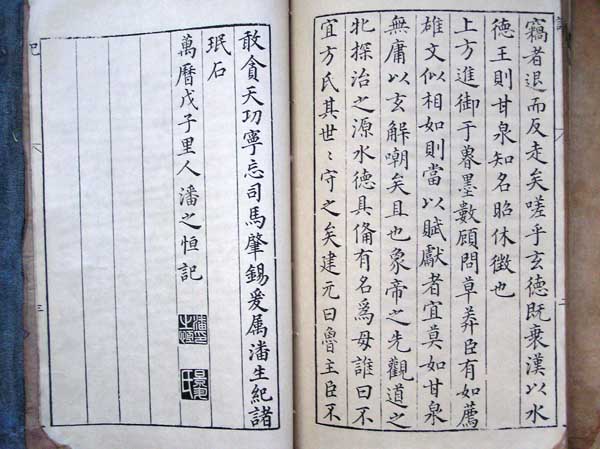 竊者退而反走矣嗟乎玄德既衰漢以水
德王則甘泉知名昭休徵也
上方進御于麋墨數顧問草莽臣有如薦
雄文似相如則當以賦獻者宜莫如甘泉
無庸以玄解嘲矣且也象帝之先觀道之
北探治之源水德具備有名為母誰曰不
宜方氏其世〻守之矣建元曰魯主臣不
敢貪天功寧忘司馬肇錫爰属潘生紀諸
珉石
萬曆戊子里人潘之恒記
潘之恒
景升氏
記
三
二